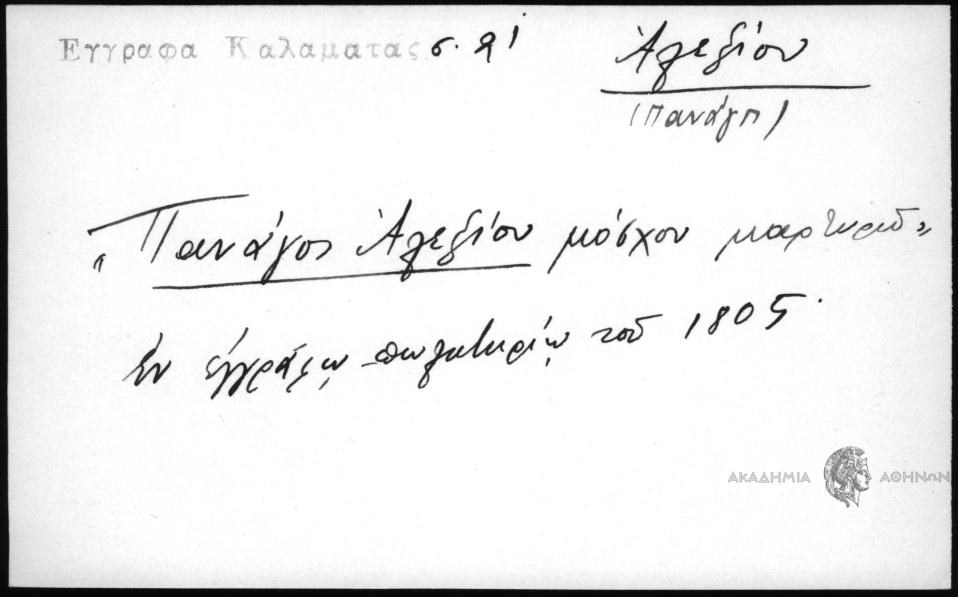 Εγγραφα Καλαματας σ. 91
Ἀλεξίου
(Πανάγη)
"Πανάγος Ἀλεξίου μόσχου μαρτυρῶ"
ἐν ἐγγράφῳ πωλητηρίῳ τοῦ 1805.
ΑΚΑΔΗΜΙΑ ΑΘΗΝΩΝ